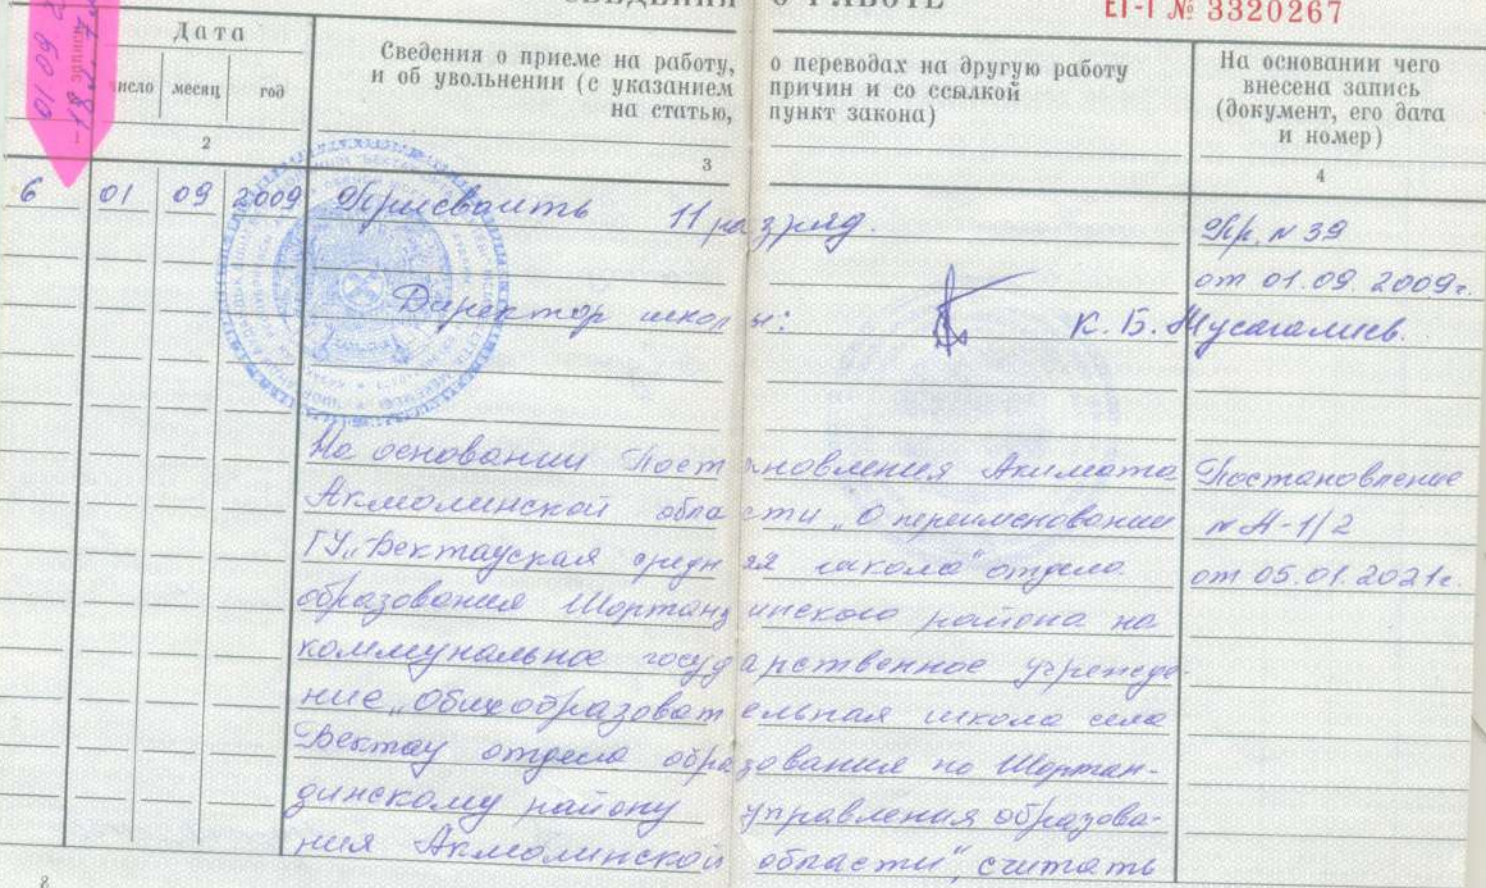 СВЕДЕНИЯ О РАБОТЕ
ЕТ-I № 3320267
01 09
Дата
число месяц год
Сведения о приеме на работу, о переводах на другую работу
и об увольнении (с указанием причин и со ссылкой
на статью, пункт закона)
На основании чего
внесена запись
(документ, его дата
и номер)
2 3 4
6 01 09 2009 Присвоить 11 разряд. Пр. N 39
от 01.09.2009г.
Директор школы: К. Б. Мусагалиев.
На основании Постановления Акимата Постановление
Акмолинской области „О переименовании N А-1/2
ГУ „Бектауская средняя школа" отдела от 05.01.2021г.
образования Шортандинского района на
коммунальное государственное учрежде-
ние „Общеобразовательная школа села
Бектау отдела образования по Шортан-
динскому району управления образова-
ния Акмолинской области", считать
8